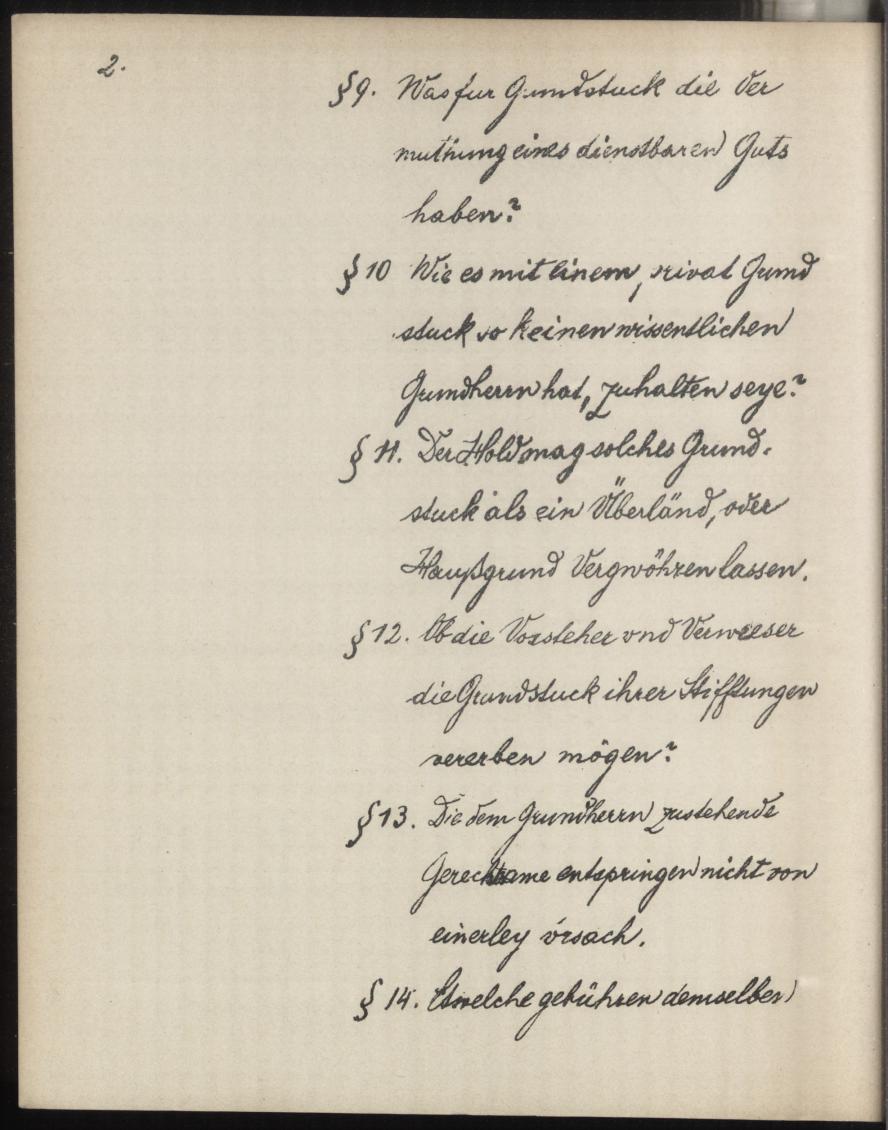 2.
§ 9. Was fur Grundstuck die Ver
muthung eines dienstbaren Guts
haben?
§ 10 Wie es mit einem, privat Grund
stuck so keinen wissentlichen
Grundherrn hat, zuhalten seye?
§ 11. Der Hold mag solches Grund-
stuck als ein Überländ, oder
Haußgrund Vergwöhren lassen.
§ 12. Ob die Vorsteher vnd Verweeser
die Grundstuck ihrer Stifftungen
vererben mögen?
§ 13. Die dem Grundherrn zustehende
Gerechtsame entspringen nicht von
einerley vrsach.
§ 14. Etwelche gebühren demselben